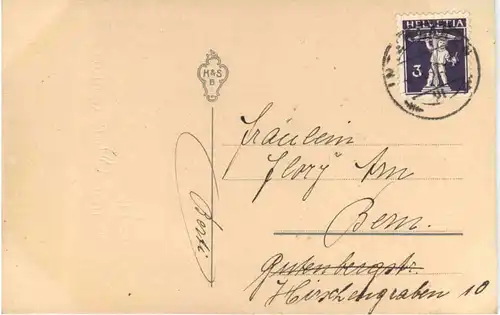 HELVETIA
3
H&S
B
Fräulein
"Flory" Arn
Bern.
Gutenbergstr.
Hirschengraben 10
Berti